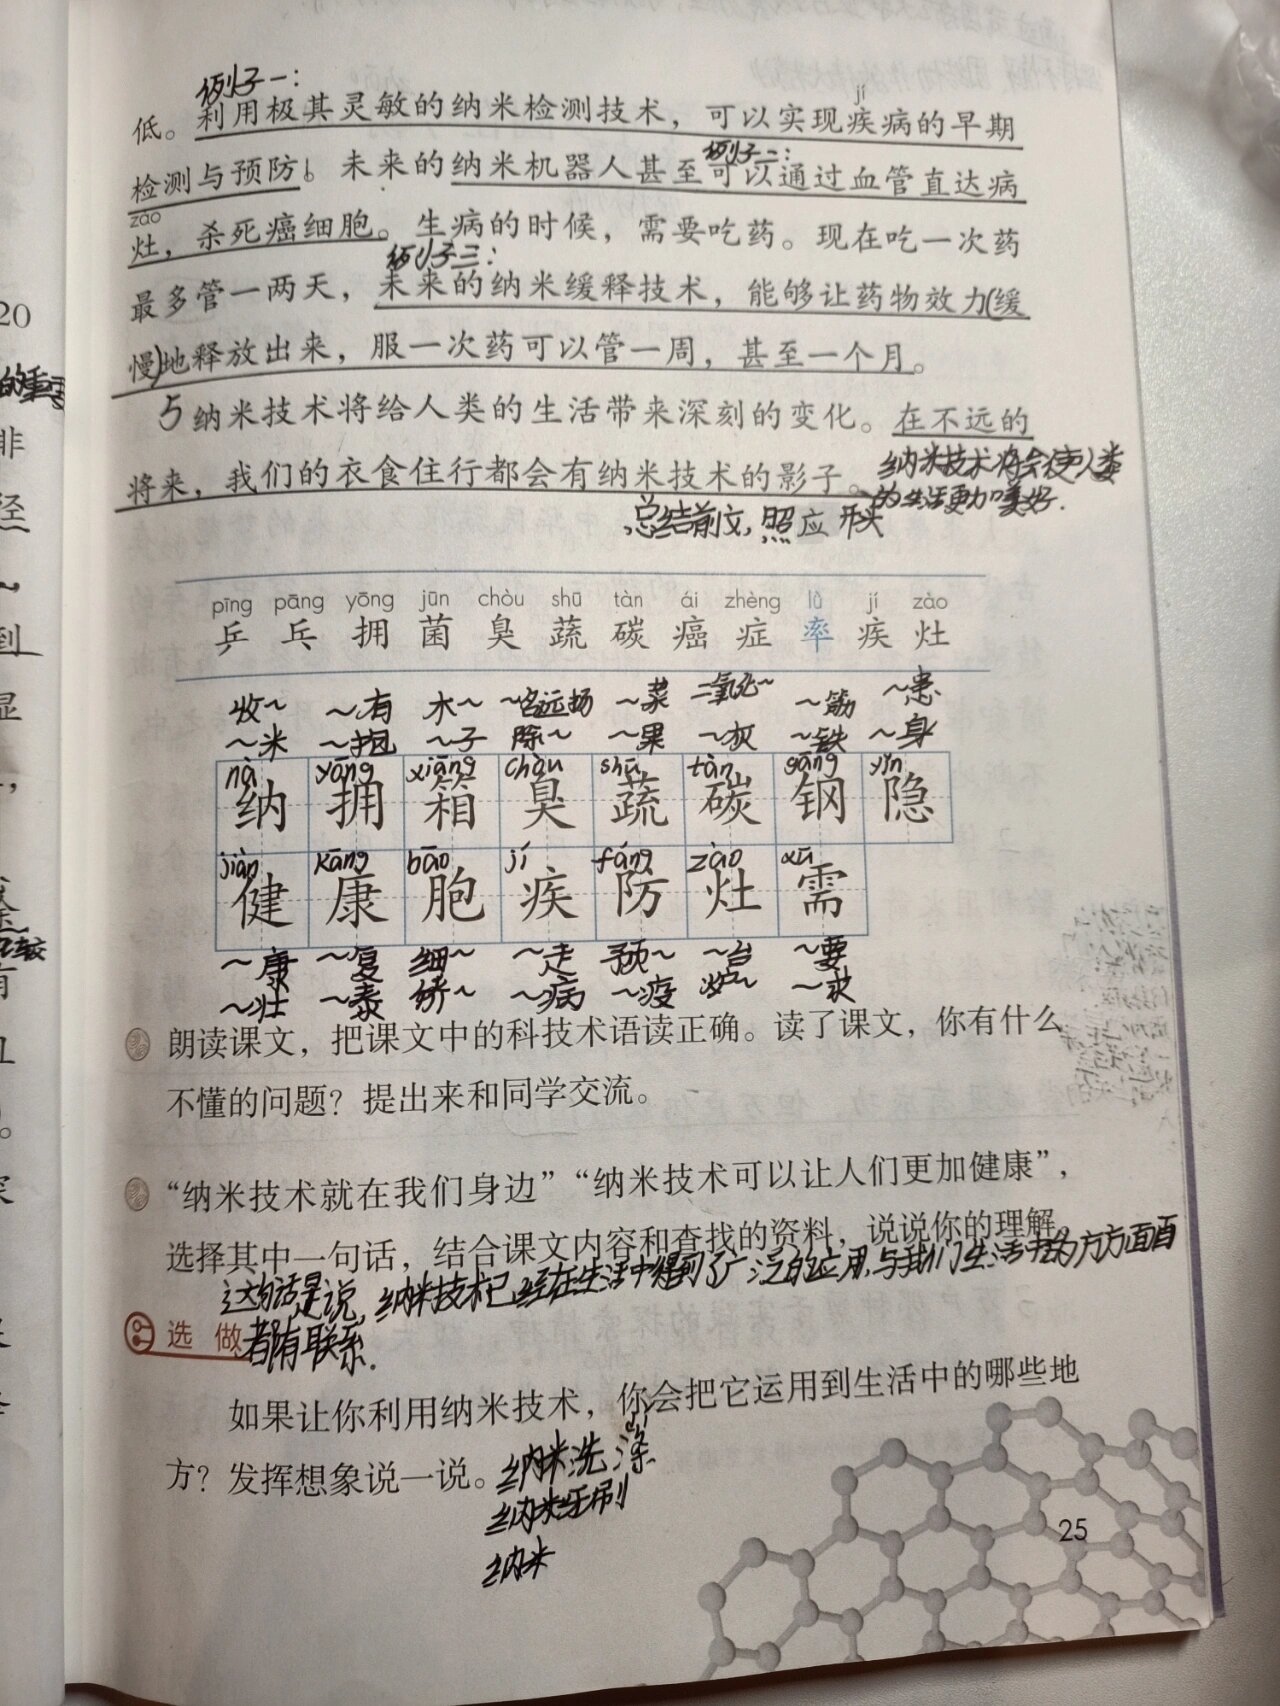 例子一：
jí
低。利用极其灵敏的纳米检测技术，可以实现疾病的早期
例子二：
检测与预防。未来的纳米机器人甚至可以通过血管直达病
zào
灶，杀死癌细胞。生病的时候，需要吃药。现在吃一次药
例子三：
最多管一两天，未来的纳米缓释技术，能够让药物效力(缓
慢)地释放出来，服一次药可以管一周，甚至一个月。
5 纳米技术将给人类的生活带来深刻的变化。在不远的
将来，我们的衣食住行都会有纳米技术的影子。
纳米技术将会使人类
的生活更加美好.
总结前文，照应开头
pīng pāng yōng jūn chòu shū tàn ái zhèng lǜ jí zào
乒 乓 拥 菌 臭 蔬 碳 癌 症 率 疾 灶
收～ ～有 木～ ～名远扬 ～菜 二氧化～ ～筋 ～患
～米 ～抱 ～子 除～ ～果 ～灰 ～铁 ～身
nà yōng xiāng chòu shū tàn gāng yǐn
纳 拥 箱 臭 蔬 碳 钢 隐
jiàn kāng bāo jí fáng zào xū
健 康 胞 疾 防 灶 需
～康 ～复 细～ ～走 预～ ～台 ～要
～壮 ～泰 娇～ ～病 ～疫 炉～ ～求
朗读课文，把课文中的科技术语读正确。读了课文，你有什么
不懂的问题？提出来和同学交流。
“纳米技术就在我们身边”“纳米技术可以让人们更加健康”，
选择其中一句话，结合课文内容和查找的资料，说说你的理解。
这句话是说，纳米技术已经在生活中得到了广泛的应用，与我们生活中的方方面面
都有联系.
选 做
如果让你利用纳米技术，你会把它运用到生活中的哪些地
方？发挥想象说一说。
纳米洗涤
纳米牙刷
纳米
25
20
非
到
显